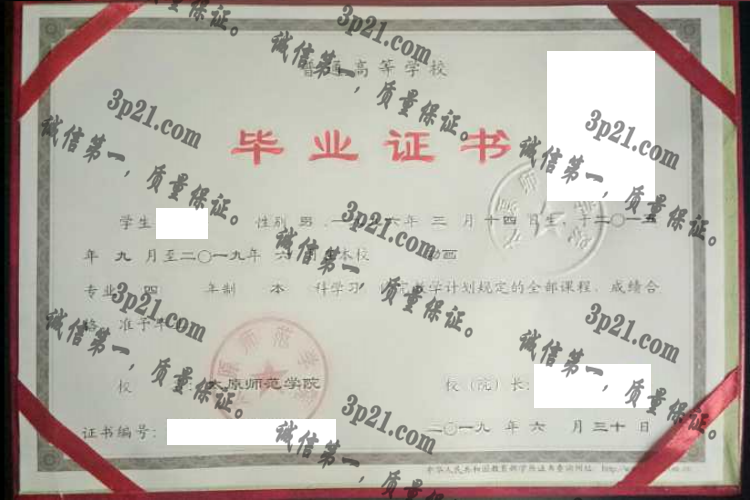 普通高等学校
毕业证书
学生 性别 男、一九九六年 三 月 十四 日生、于二〇一五
年 九 月至二〇一九年 六 月在本校
专业 四 年制 本 科学习 完教学计划规定的全部课程、成绩合
格 准予毕业
校 太原师范学院 校(院)长:
证书编号: 二〇一九 年 六 月三十日
中华人民共和国教育部学历证书查询网址 http://
3p21.com
诚信第一,质量保证。
3p21.com
诚信第一,质量保证。
3p21.com
诚信第一,质量保证。
3p21.com
诚信第一,质量保证。
3p21.com
诚信第一,质量保证。
3p21.com
诚信第一,质量保证。
3p21.com
诚信第一,质量保证。